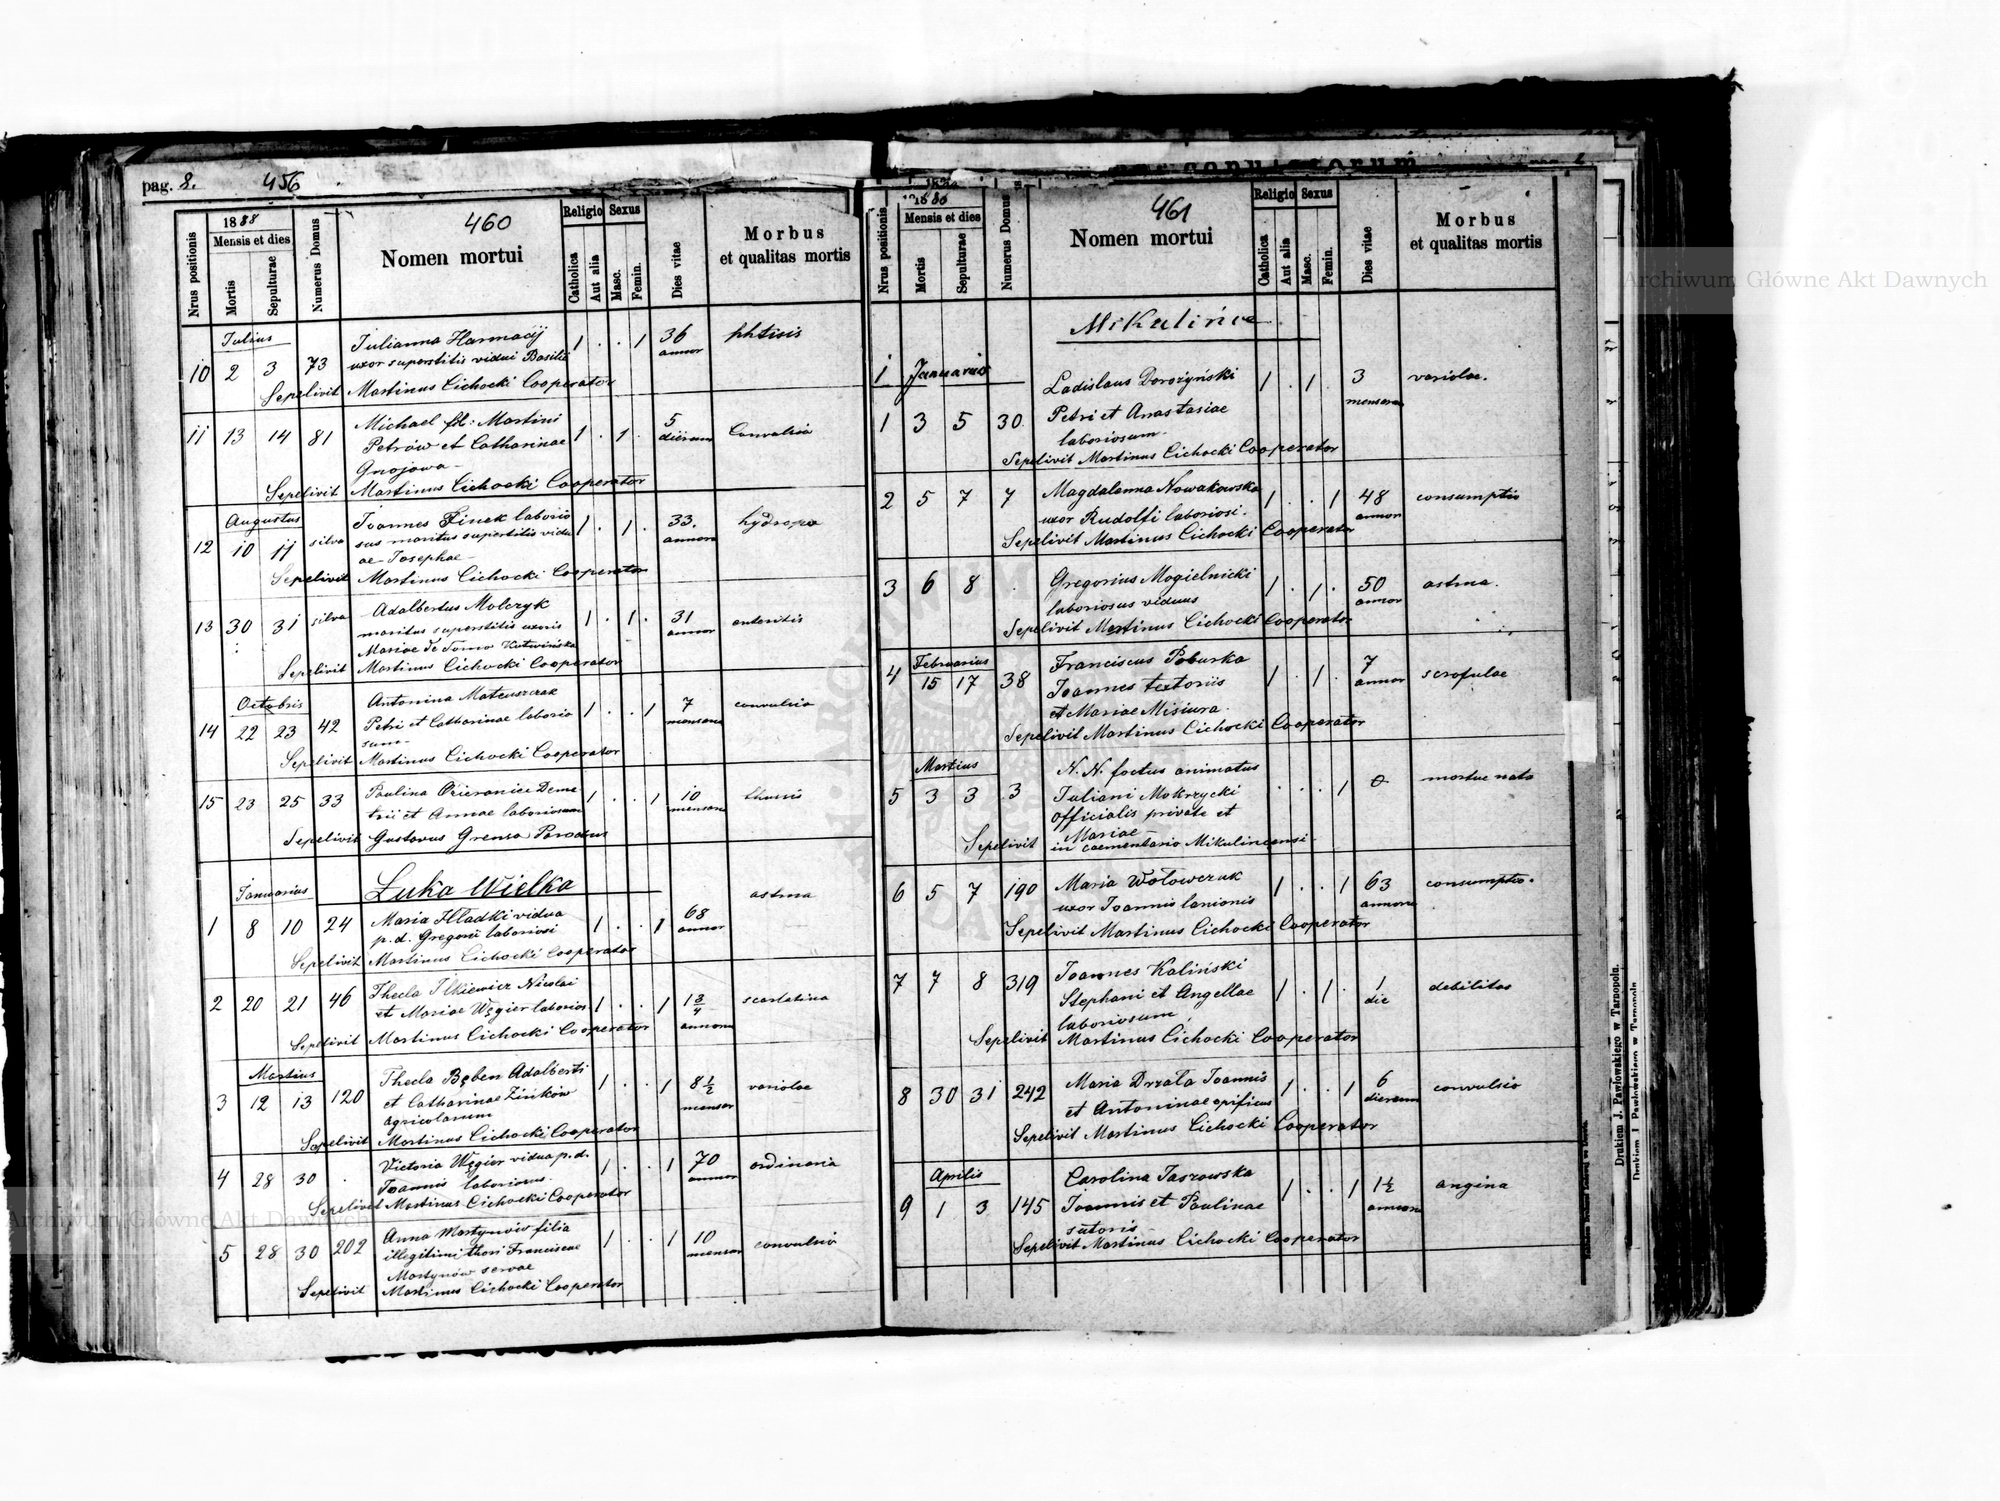 pag. 8. 456
460
1888
Nrus positionis
Mensis et dies
Mortis
Sepulturae
Numerus Domus
Nomen mortui
Religio
Catholica
Aut alia
Sexus
Masc.
Femin.
Dies vitae
Morbus
et qualitas mortis
Julius
10 2 3 73 Julianna Harmacij 1 . . 1 36 phtisis
uxor superstitis vidui Basilii annor
Sepelivit Martinus Cichocki Cooperator
11 13 14 81 Michael fil: Martini 1 . 1 . 5 Convulsio
Petrów et Catharinae dierum
Gnojowa
Sepelivit Martinus Cichocki Cooperator
Augustus
12 10 11 silva Joannes Finek laborio 1 . 1 . 33. hydrops
sus maritus superstitis vidu annoru
ae Josephae
Sepelivit Martinus Cichocki Cooperator
13 30 31 silva Adalbertus Molczyk 1 . 1 . 31 enteritis
maritus superstitis uxoris annor
Mariae de domo Kotwińska
Sepelivit Martinus Cichocki Cooperator
Octobris
14 22 23 42 Antonina Mateuszczak 1 . . 1 7 convulsio
Petri et Catharinae laborio mensoru
sum
Sepelivit Martinus Cichocki Cooperator
15 23 25 33 Paulina Ozieranici Deme 1 . . 1 10
trii et Annae laboriosum mensoru
Sepelivit Gustavus Parochus
Januarius Łuka Wielka
1 8 10 24 Maria Hladki vidua 1 . . 1 68 astma
p.d. Gregorii laboriosi annor
Sepelivit Martinus Cichocki Cooperator
2 20 21 46 Thecla Ilkiewicz Nicolai 1 . . 1 1 3/4 scarlatina
et Mariae Węgier laborios. annoru
Sepelivit Martinus Cichocki Cooperator
Martius
3 12 13 120 Thecla Bęben Adalberti 1 . . 1 8 1/2 variolae
et Catharinae Zińków mensor
agricolarum
Sepelivit Martinus Cichocki Cooperator
4 28 30 . Victoria Węgier vidua p.d. 1 . . 1 70 ordinaria
Joannis laboriosus annor
Sepelivit Martinus Cichocki Cooperator
5 28 30 202 Anna Martynów filia 1 . . 1 10 convulsio
illegitimi thori Franciscae mensor
Martynów servae
Sepelivit Martinus Cichocki Cooperator
461
Nrus positionis
Mensis et dies
Mortis
Sepulturae
Numerus Domus
Nomen mortui
Religio
Catholica
Aut alia
Sexus
Masc.
Femin.
Dies vitae
Morbus
et qualitas mortis
Mikulińce
1 Januarius
1 3 5 30. Ladislaus Dorożyński 1 . 1 . 3 variolae.
Petri et Anastasiae mensoru
laboriosum
Sepelivit Martinus Cichocki Cooperator
2 5 7 7 Magdalenna Nowakowska 1 . . 1 48 consumptio
uxor Rudolfi laboriosi. annor
Sepelivit Martinus Cichocki Cooperator
3 6 8 . Gregorius Mogielnicki 1 . 1 . 50 astma.
laboriosus viduus annor
Sepelivit Martinus Cichocki Cooperator
Februarius
4 15 17 38 Franciscus Poburka 1 . 1 . 7 scrofulae
Joannes textoriis annor
et Mariae Misiura
Sepelivit Martinus Cichocki Cooperator
Martius
5 3 3 3 N. N. foetus animatus . . . 1 0 mortue nato
Juliani Mokrzycki
officialis private et
Mariae
Sepelivit in caementario Mikulincensi
6 5 7 190 Maria Wołowczuk 1 . . 1 63 consumptio.
uxor Joannis lanionis annoru
Sepelivit Martinus Cichocki Cooperator
7 7 8 319 Joannes Kaliński 1 . 1 . 1 debilitas
Stephani et Angellae die
laboriosum
Sepelivit Martinus Cichocki Cooperator
8 30 31 242 Maria Drzała Joannis 1 . . 1 6 convulsio
et Antoninae opificus dierum
Sepelivit Martinus Cichocki Cooperator
Aprilis
9 1 3 145 Carolina Jaszowska 1 . . 1 1 1/2 angina
Joannis et Paulinae annoru
sutoris
Sepelivit Martinus Cichocki Cooperator
Drukiem J. Pawłowskiego w Tarnopolu.
Drukiem J. Pawłowskiego w Tarnopolu
Archiwum Główne Akt Dawnych
Archiwum Główne Akt Dawnych